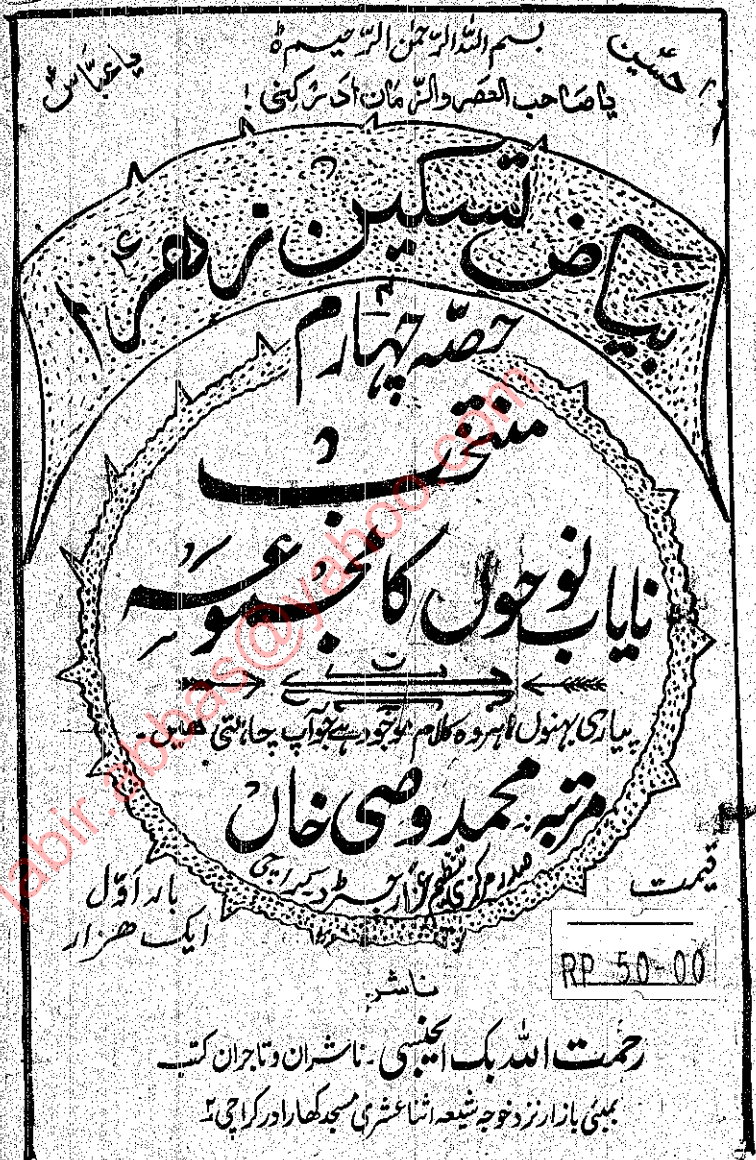 بسم اللہ الرّحمٰن الرّحیم ہ
یا حسینؑ
یا عباسؑ
یا صاحب العصر والزمان ادرکنی !
بیاض تسکین زھراؑ
حصّہ چہارم
منتخب
نایاب نوحوں کا مجموعہ
پیاری بہنوں! ہر وہ کلام موجود ہے جو آپ چاہتی ہیں۔
مرتبہ: محمد وصی خاں
صدر مرکزی تنظیم عزا رجسٹرڈ کراچی
بار اوّل
ایک ھزار
قیمت
RP 50-00
ناشر
رحمت اللہ بک ایجنسی ۔ ناشران و تاجران کتب
بمبئی بازار نزد خوجہ شیعہ اثنا عشری مسجد کھارادر کراچی ۲
jabir.abbas@yahoo.com